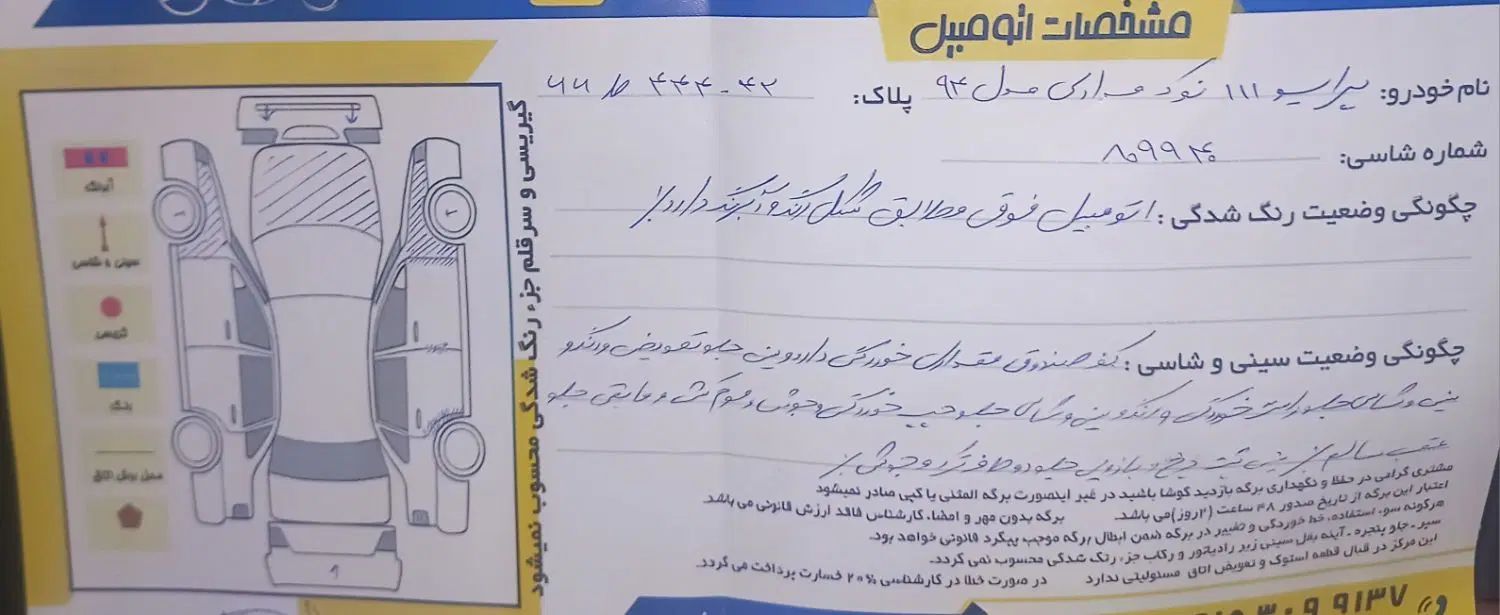 مشخصات اتومبیل
نام خودرو: پراید 111 نوک مدادی مدل 94 پلاک: 42-444 ط 77
شماره شاسی:
چگونگی وضعیت رنگ شدگی: اتومبیل فوق مطابق شکل رنگ و آبرنگ دارد
چگونگی وضعیت سینی و شاسی: کف صندوق مقداری خوردگی دارد سینی جلو تعویض و رنگ و
سینی و شاسی جلو راست خوردگی و رنگ و سینی و شاسی جلو چپ خوردگی جوش و موم کشی و مابقی جلو
عقب سالم
مشتری گرامی در حفظ و نگهداری برگه بازدید کوشا باشید در غیر اینصورت برگه المثنی یا کپی صادر نمیشود
اعتبار این برگه از تاریخ صدور ۴۸ ساعت (۲روز)می باشد. برگه بدون مهر و امضاء کارشناس فاقد ارزش قانونی می باشد.
هرگونه سوء استفاده، خط خوردگی و تغییر در برگه ضمن ابطال برگه موجب پیگرد قانونی خواهد بود.
سپر - جلو پنجره - آینه بغل سینی زیر رادیاتور و رکاب جزء رنگ شدگی محسوب نمی گردد.
این مرکز در قبال قطعه استوک و تعویض اتاق مسئولیتی ندارد در صورت خطا در کارشناسی ۲۰% خسارت پرداخت می گردد.
گیریسی و سرقلم جزء رنگ شدگی محسوب نمیشود
آبرنگ
سینی و شاسی
گریسی
رنگ
محل برش اتاق